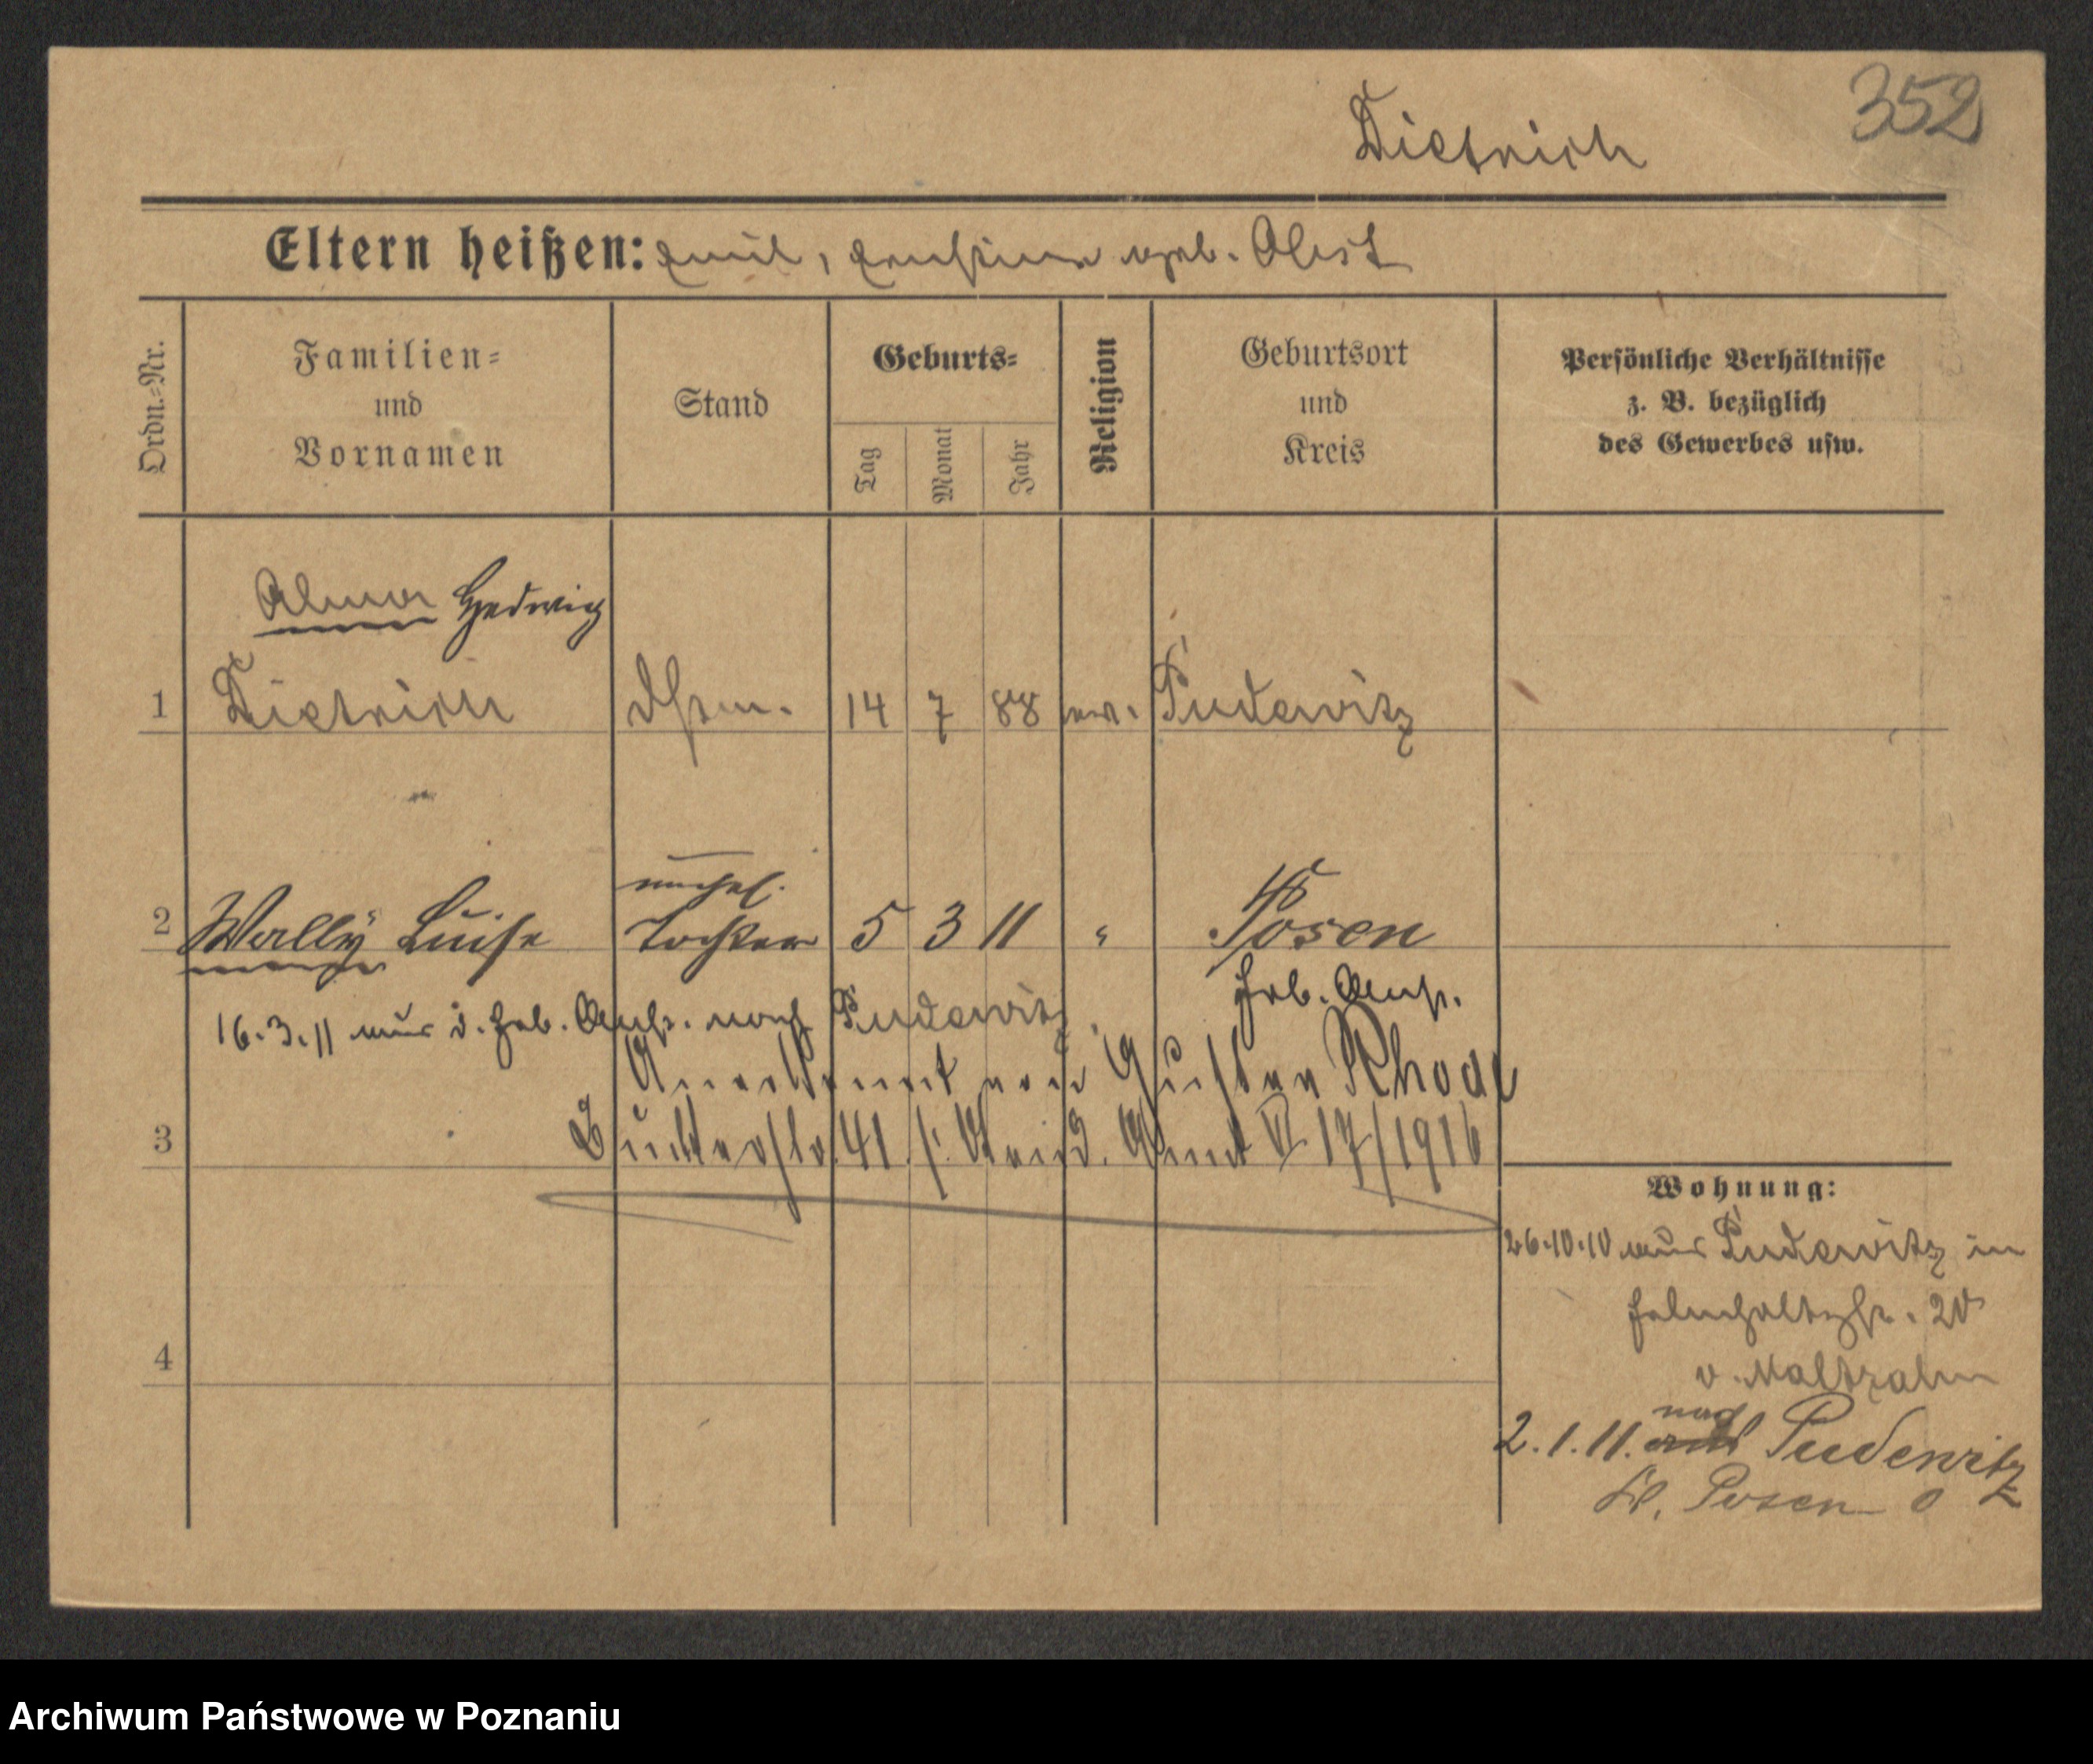 352
Dietrich
Eltern heißen: Emil, Ernstine geb. Obst
Ordn.=Nr.
Familien=
und
Vornamen
Stand
Geburts=
Tag
Monat
Jahr
Religion
Geburtsort
und
Kreis
Persönliche Verhältnisse
z. B. bezüglich
des Gewerbes usw.
Alma Hedwig
1 Dietrich 14 7 88 ev. Pudewitz
unehel.
2 Wally Luise Tochter 5 3 11 " Posen
Geb. Anst.
16.3.11 aus d. Geb. Anst. nach Pudewitz
Anerkannt von Gustav Rhode
41 17/1916
3
Wohnung:
26.10.10 aus Pudewitz in
20
v. Maltzahn
4
nach
2.1.11. Pudewitz
Kr. Posen O
Archiwum Państwowe w Poznaniu